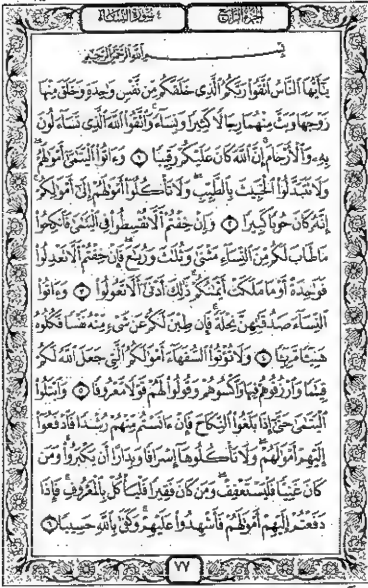 الجزء الرابع
٤ سورة النساء
بِسْمِ اللَّهِ الرَّحْمَٰنِ الرَّحِيمِ
يَٰٓأَيُّهَا النَّاسُ اتَّقُوا رَبَّكُمُ الَّذِى خَلَقَكُم مِّن نَّفْسٍ وَٰحِدَةٍ وَخَلَقَ مِنْهَا
زَوْجَهَا وَبَثَّ مِنْهُمَا رِجَالًا كَثِيرًا وَنِسَآءً وَاتَّقُوا اللَّهَ الَّذِى تَسَآءَلُونَ
بِهِۦ وَالْأَرْحَامَ إِنَّ اللَّهَ كَانَ عَلَيْكُمْ رَقِيبًا ١ وَءَاتُوا الْيَتَٰمَىٰٓ أَمْوَٰلَهُمْ
وَلَا تَتَبَدَّلُوا الْخَبِيثَ بِالطَّيِّبِ وَلَا تَأْكُلُوٓا أَمْوَٰلَهُمْ إِلَىٰٓ أَمْوَٰلِكُمْ
إِنَّهُۥ كَانَ حُوبًا كَبِيرًا ٢ وَإِنْ خِفْتُمْ أَلَّا تُقْسِطُوا فِى الْيَتَٰمَىٰ فَانكِحُوا
مَا طَابَ لَكُم مِّنَ النِّسَآءِ مَثْنَىٰ وَثُلَٰثَ وَرُبَٰعَ فَإِنْ خِفْتُمْ أَلَّا تَعْدِلُوا
فَوَٰحِدَةً أَوْ مَا مَلَكَتْ أَيْمَٰنُكُمْ ذَٰلِكَ أَدْنَىٰٓ أَلَّا تَعُولُوا ٣ وَءَاتُوا
النِّسَآءَ صَدُقَٰتِهِنَّ نِحْلَةً فَإِن طِبْنَ لَكُمْ عَن شَىْءٍ مِّنْهُ نَفْسًا فَكُلُوهُ
هَنِيٓـًٔا مَّرِيٓـًٔا ٤ وَلَا تُؤْتُوا السُّفَهَآءَ أَمْوَٰلَكُمُ الَّتِى جَعَلَ اللَّهُ لَكُمْ
قِيَٰمًا وَارْزُقُوهُمْ فِيهَا وَاكْسُوهُمْ وَقُولُوا لَهُمْ قَوْلًا مَّعْرُوفًا ٥ وَابْتَلُوا
الْيَتَٰمَىٰ حَتَّىٰٓ إِذَا بَلَغُوا النِّكَاحَ فَإِنْ ءَانَسْتُم مِّنْهُمْ رُشْدًا فَادْفَعُوٓا
إِلَيْهِمْ أَمْوَٰلَهُمْ وَلَا تَأْكُلُوهَآ إِسْرَافًا وَبِدَارًا أَن يَكْبَرُوا وَمَن
كَانَ غَنِيًّا فَلْيَسْتَعْفِفْ وَمَن كَانَ فَقِيرًا فَلْيَأْكُلْ بِالْمَعْرُوفِ فَإِذَا
دَفَعْتُمْ إِلَيْهِمْ أَمْوَٰلَهُمْ فَأَشْهِدُوا عَلَيْهِمْ وَكَفَىٰ بِاللَّهِ حَسِيبًا ٦
٧٧